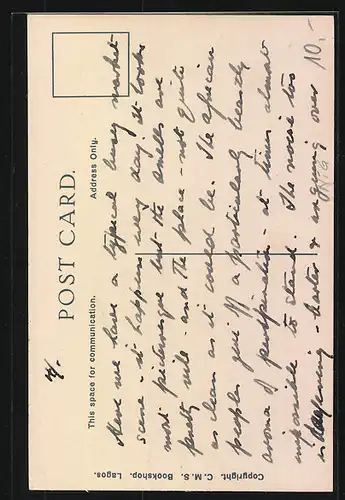 POST CARD.
This space for communication.
Address Only.
Here we have a typical busy market
scene - it happens every day. It looks
most picturesque but the smells are
pretty vile - and the place - not quite
as clean as it could be. The african
peoples give off a particularly beastly
aroma of perspiration - at times almost
impossible to stand. The noise too
is deafening - haters & arguing over
Copyright. C. M. S. Bookshop. Lagos.
10.-